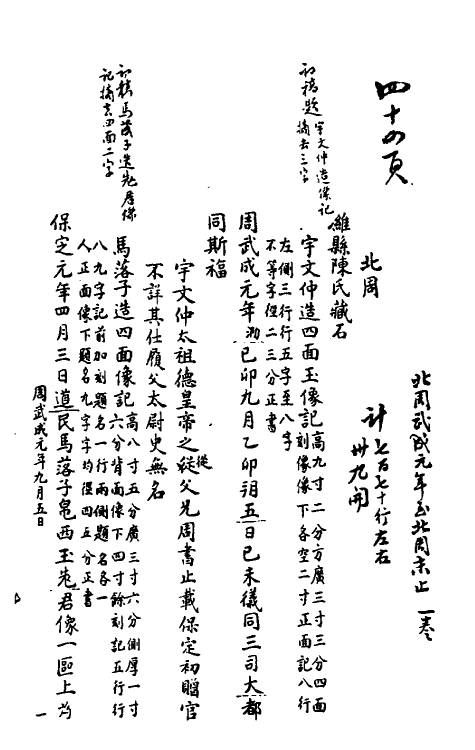 北周武成元年至北周末止 一卷
四十四頁
計七百七十行左右
卅九開
北周
濰縣陳氏藏石
初稿題宇文仲造像記
摘去三字
宇文仲造四面玉像記高九寸二分方廣三寸三分四面
刻像像下各空二寸正面記八行
左側三行行五字至八字
不等字徑二三分正書
周武成元年 己卯九月乙卯朔五日己未儀同三司大都
同斯福
宇文仲太祖德皇帝之從父兄周書止載保定初贈官
從
不詳其仕履父太尉史無名
初稿馬落子造老君像
記摘去四面二字
馬落子造四面像記高八寸五分廣三寸六分側厚一寸
六分背面像下四寸餘刻記五行行
八九字記前加刻題名一行兩側題名各一
人正面像下題名九字字均徑四五分正書
保定元年四月三日道民馬落子 西玉老君像一區上為
周武成元年九月五日
一